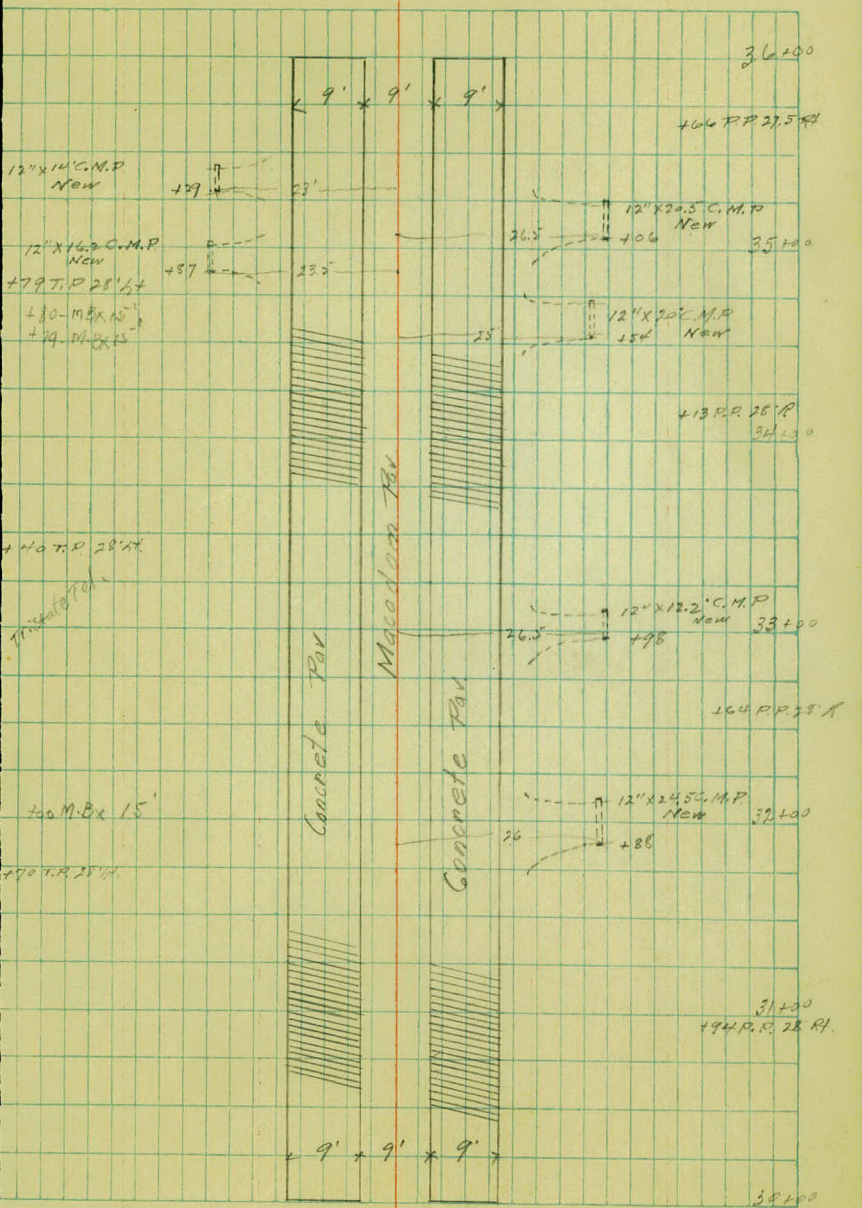 36+00
9' 9' 9'
+66 P.P. 27.5 Rt
12" X 14' C.M.P
New
+29
23'
12" X 20.5 C.M.P
New
26.5
+06
35+00
12" X 16.2 C.M.P
New
+87
23.5
+79 T.P. 28' Lt
+80- M.Bx 15'
+79- M.Bx 15'
12" X 20' C.M.P
New
25
+54
+13 P.P. 28' R
34+00
Macadam Pav
+40 T.P. 28' Lt.
Tri State Tel.
12" X 12.2' C.M.P
New
26.5
+98
33+00
Concrete Pav
Concrete Pav.
+64 P.P. 28' R
+00 M.Bx 15'
12" X 24.5 C.M.P.
New
26
+88
32+00
+70 T.P. 28' Lt.
31+00
+94 P.P. 28 Rt.
9' 9' 9'
30+00